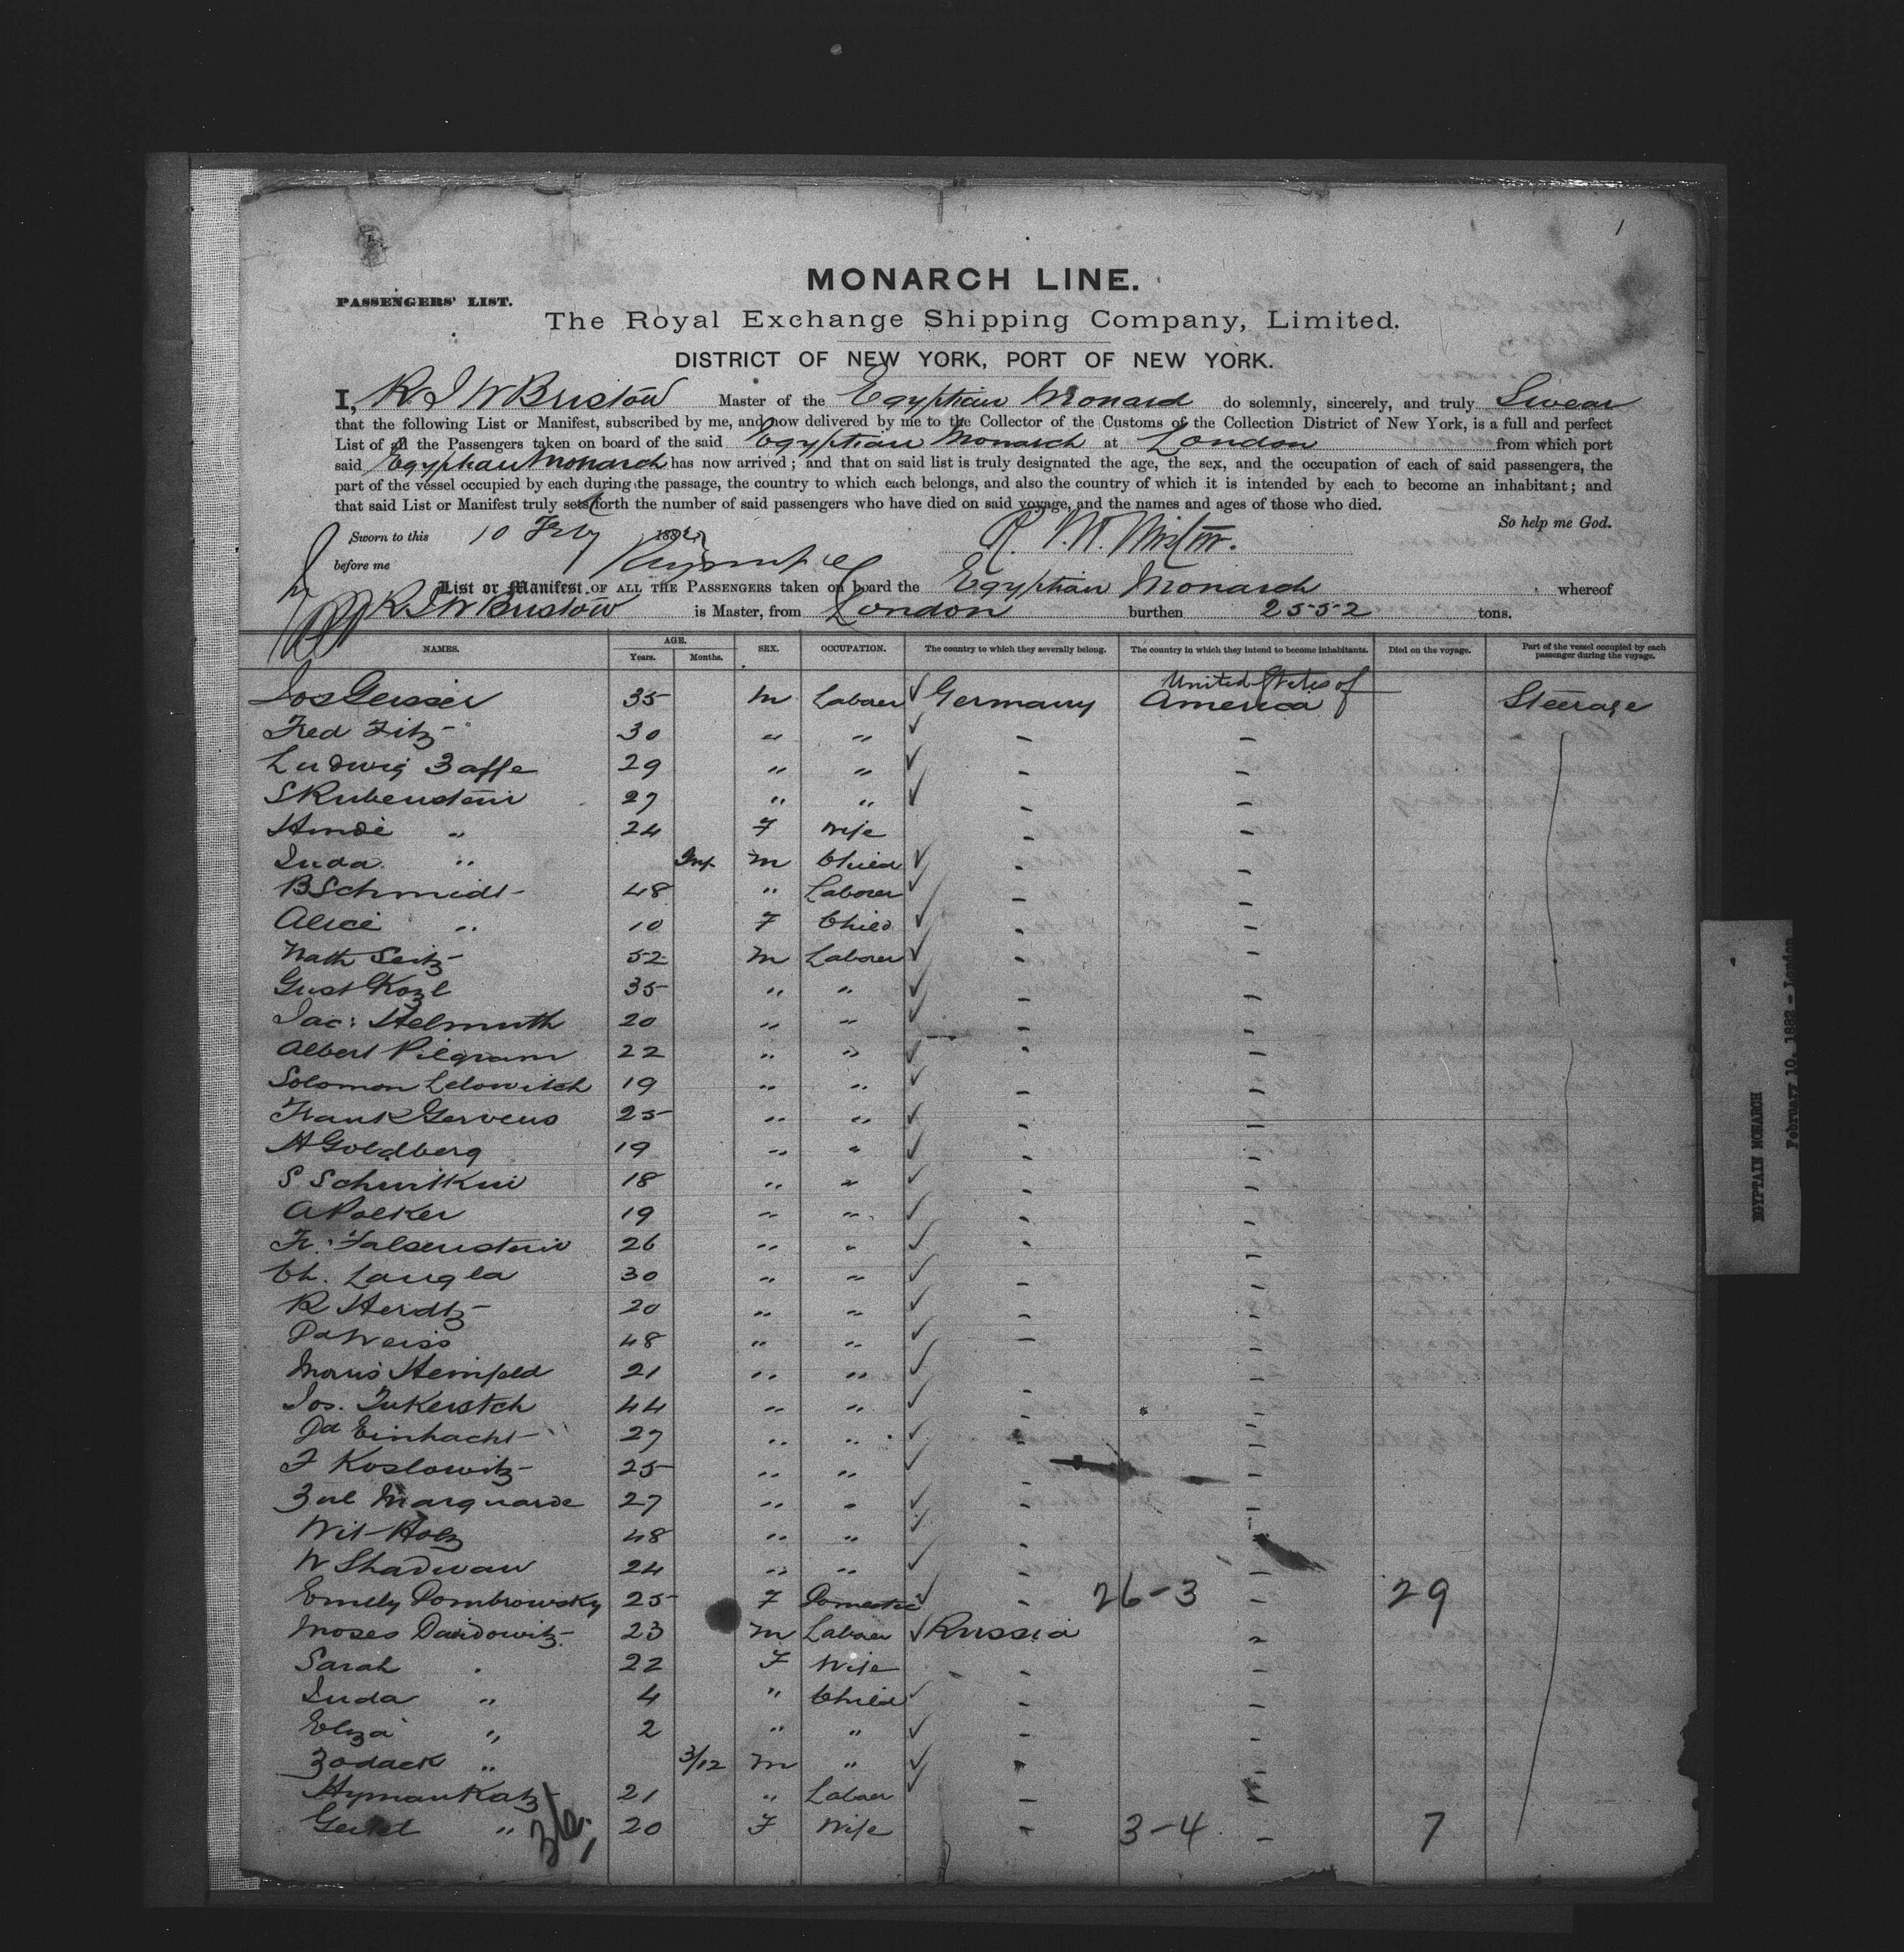 1
MONARCH LINE.
PASSENGERS' LIST.
The Royal Exchange Shipping Company, Limited.
DISTRICT OF NEW YORK, PORT OF NEW YORK.
I, R J W Bristow Master of the Egyptian Monarch do solemnly, sincerely, and truly Swear
that the following List or Manifest, subscribed by me, and now delivered by me to the Collector of the Customs of the Collection District of New York, is a full and perfect
List of all the Passengers taken on board of the said Egyptian Monarch at London from which port
said Egyptian Monarch has now arrived; and that on said list is truly designated the age, the sex, and the occupation of each of said passengers, the
part of the vessel occupied by each during the passage, the country to which each belongs, and also the country of which it is intended by each to become an inhabitant; and
that said List or Manifest truly sets forth the number of said passengers who have died on said voyage, and the names and ages of those who died.
So help me God.
Sworn to this 10 Feby 1882
before me
List or Manifest OF ALL THE PASSENGERS taken on board the Egyptian Monarch whereof
R J W Bristow is Master, from London burthen 2552 tons.
NAMES. AGE. Years. Months. SEX. OCCUPATION. The country to which they severally belong. The country in which they intend to become inhabitants. Died on the voyage. Part of the vessel occupied by each passenger during the voyage.
Jos Geisser 35 m Laborer ✓ Germany United States of America Steerage
Fred Fitz 30 " " ✓ - -
Ludwig Zaffe 29 " " ✓ - -
S Rubenstein 27 " " ✓ - -
Hinde " 24 F Wife - -
Juda " Inf m Child ✓ - -
B Schmidt 48 " Laborer ✓ - -
Alice " 10 F Child ✓ - -
Nath Seitz 52 m Laborer ✓ - -
Gust Kozl 35 " " ✓ - -
Jac: Helmuth 20 " " ✓ - -
Albert Pilgram 22 " " ✓ - -
Solomon Lelowitch 19 " " ✓ - -
Frank Gerveus 25 " " ✓ - -
H Goldberg 19 " " ✓ - -
S 18 " " ✓ - -
A Polker 19 " " ✓ - -
Fr. Falsenstein 26 " " ✓ - -
Ch. Langla 30 " " ✓ - -
R Herdtz 20 " " ✓ - -
Weiss 48 " " ✓ - -
Moris Heinfeld 21 " " ✓ - -
Jos. 44 " " ✓ - -
Einhacht 27 " " ✓ - -
F Koslowitz 25 " " ✓ - -
Jul Marquarde 27 " " ✓ - -
Wil Holz 48 " " ✓ - -
W Shadwau 24 " " ✓ - -
Emely Dombrowsky 25 F Domestic ✓ - 26-3 - 29
Moses Davidowitz 23 m Laborer ✓ Russia "
Sarah " 22 F Wife - -
Juda " 4 " Child ✓ - -
Eliza " 2 " " ✓ - -
Zodack " 3/12 m " ✓ - -
Hyman Katz 21 " Laborer ✓ - -
" 20 F Wife - 3-4 - 7
36
EGYPTAIN MONARCH
February 10, 1882 - London